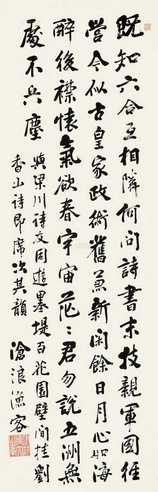 既知六合互相隣何問詩書末技親軍國經
營今似古皇家政術舊兼新閑餘日月心如海
醉後襟懷氣欲春宇宙茫々君勿說五洲無
處不兵塵
與梁川詩友同遊墨堤百花園壁間挂劉
香山詩即席次其韻
滄浪漁客